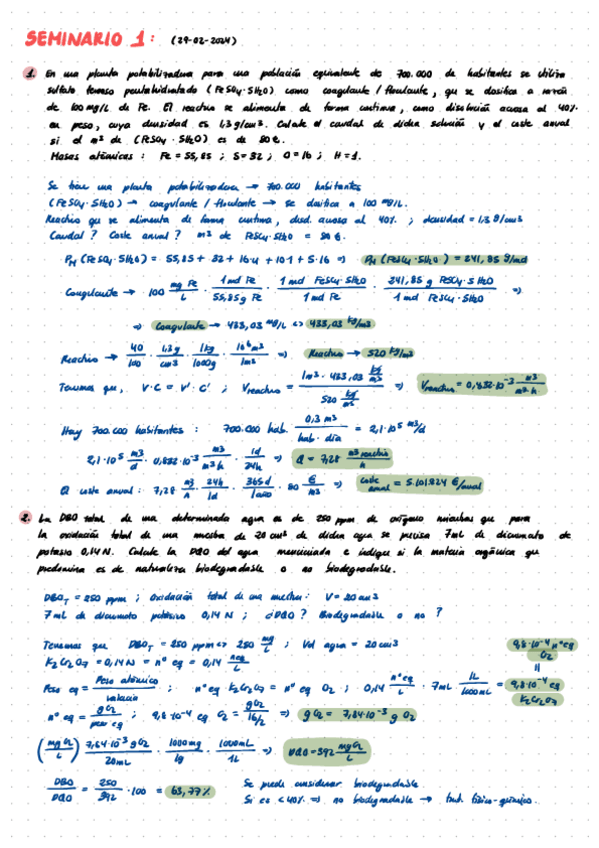 SEMINARIO 1: (29-02-2024)
1. En una planta potabilizadora para una población equivalente de 700.000 de habitantes se utiliza
sulfato ferroso pentahidratado (FeSO4·5H2O) como coagulante / floculante, que se dosifica a razón
de 100 mg/L de Fe. El reactivo se alimenta de forma continua, como disolución acuosa al 40%
en peso, cuya densidad es 1,3 g/cm3. Calcule el caudal de dicha solución y el coste anual
si el m3 de (FeSO4·5H2O) es de 80€.
Masas atómicas: Fe = 55,85 ; S = 32 ; O = 16 ; H = 1.
Se tiene una planta potabilizadora → 700.000 habitantes
(FeSO4·5H2O) → coagulante / floculante → se dosifica a 100 mg/L.
Reactivo que se alimenta de forma continua, disol. acuosa al 40% ; densidad = 1,3 g/cm3
Caudal? Coste anual? m3 de FeSO4·5H2O = 80€.
PM (FeSO4·5H2O) = 55,85 + 32 + 16·4 + 10·1 + 5·16 => PM (FeSO4·5H2O) = 241,85 g/mol
Coagulante → 100 mg Fe/L · 1 mol Fe/55,85 g Fe · 1 mol FeSO4·5H2O/1 mol Fe · 241,85 g FeSO4·5H2O/1 mol FeSO4·5H2O =>
=> Coagulante → 433,03 mg/L <> 433,03 kg/m3
Reactivo → 40/100 · 1,3 g/cm3 · 1 kg/1000 g · 10^6 m3/1 m3 => Reactivo → 520 kg/m3
Tenemos que, V·C = V'·C' ; Vreactivo = 1 m3 · 433,03 kg/m3 / 520 kg/m3 => Vreactivo = 0,832·10^-3 m3/m3 h
Hay 700.000 habitantes : 700.000 hab. · 0,3 m3/hab·día = 2,1·10^5 m3/d
2,1·10^5 m3/d · 0,832·10^-3 m3/m3 h · 1d/24h => Q = 7,28 m3 reactivo/h
Q coste anual: 7,28 m3/h · 24h/1d · 365d/1año · 80 €/m3 => coste anual = 5.101.824 €/anual
2. La DBO total de una determinada agua es de 250 ppm de oxígeno mientras que para
la oxidación total de una muestra de 20 cm3 de dicha agua se precisa 7 mL de dicromato de
potasio 0,14 N. Calcule la DQO del agua mencionada e indique si la materia orgánica que
predomina es de naturaleza biodegradable o no biodegradable.
DBOT = 250 ppm ; Oxidación total de una muestra: V = 20 cm3
7 mL de dicromato potásico 0,14 N ; ¿DQO? Biodegradable o no?
Tenemos que DBOT = 250 ppm <> 250 mg/L ; Vol agua = 20 cm3
K2Cr2O7 = 0,14 N = nº eq = 0,14 neq/L
Peso eq = Peso atómico/valencia ; nº eq K2Cr2O7 = nº eq O2 ; 0,14 nº eq/L · 7 mL · 1L/1000 mL = 9,8·10^-4 eq/K2Cr2O7 = 9,8·10^-4 nº eq/O2
nº eq = g O2/peso eq ; 9,8·10^-4 eq O2 = g O2/16/2 => g O2 = 7,84·10^-3 g O2
(mg O2/L) 7,84·10^-3 g O2/20 mL · 1000 mg/1g · 1000 mL/1L => DQO = 392 mg O2/L
DBO/DQO = 250/392 · 100 = 63,77% Se puede considerar biodegradable
Si es < 40% => no biodegradable → trat. físico-químico.